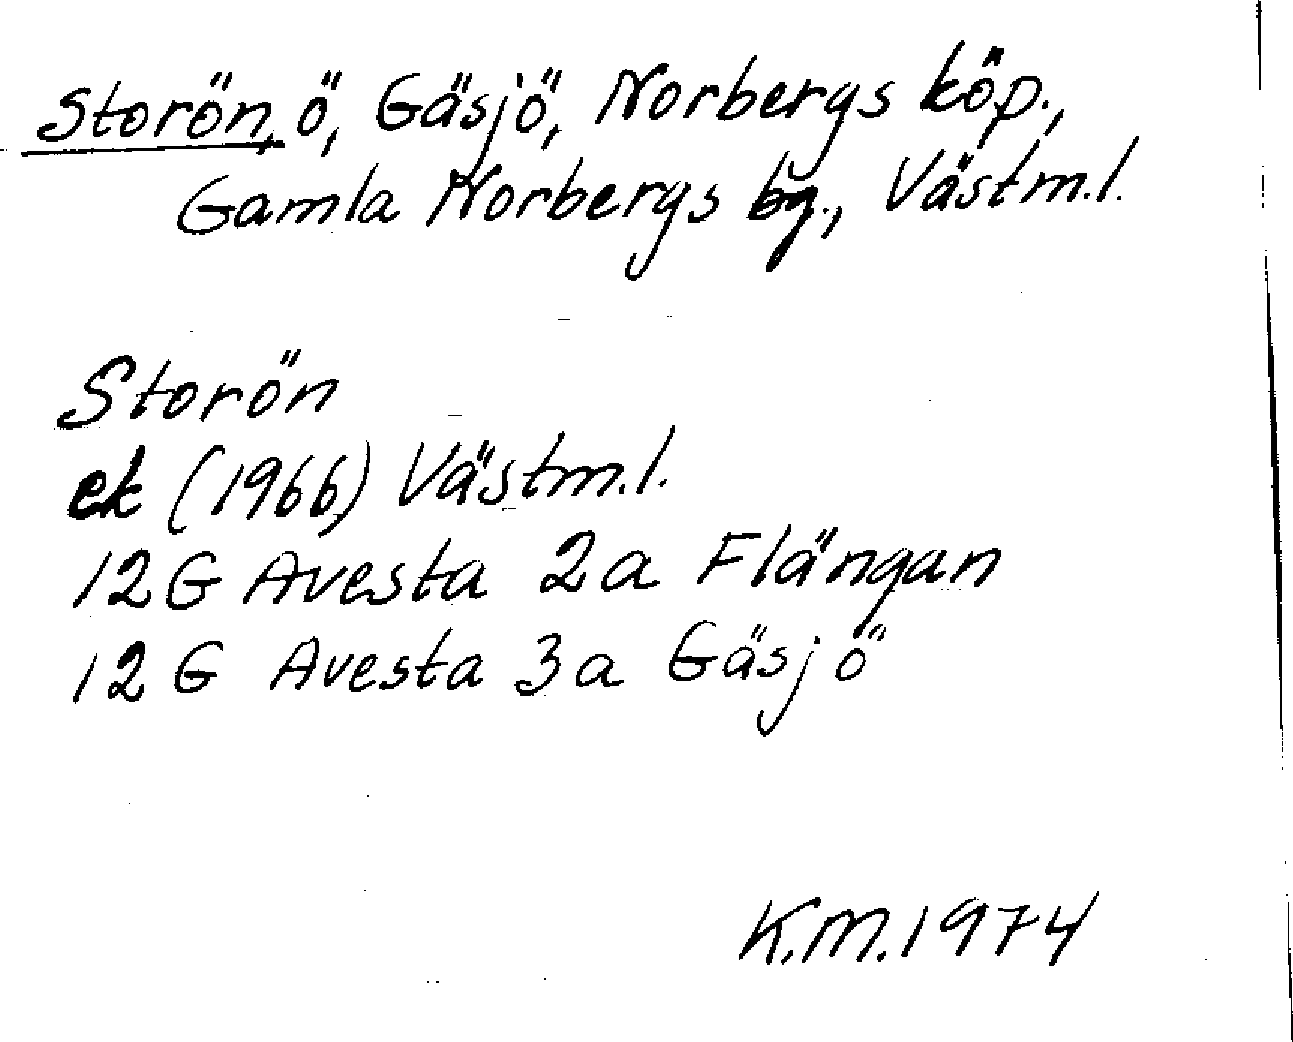 Storön, ö, Gäsjö, Norbergs köp.,
Gamla Norbergs bg., Västm.l.
Storön
ek (1966) Västm.l.
12G Avesta 2a Flängan
12G Avesta 3a Gäsjö
K.M. 1974